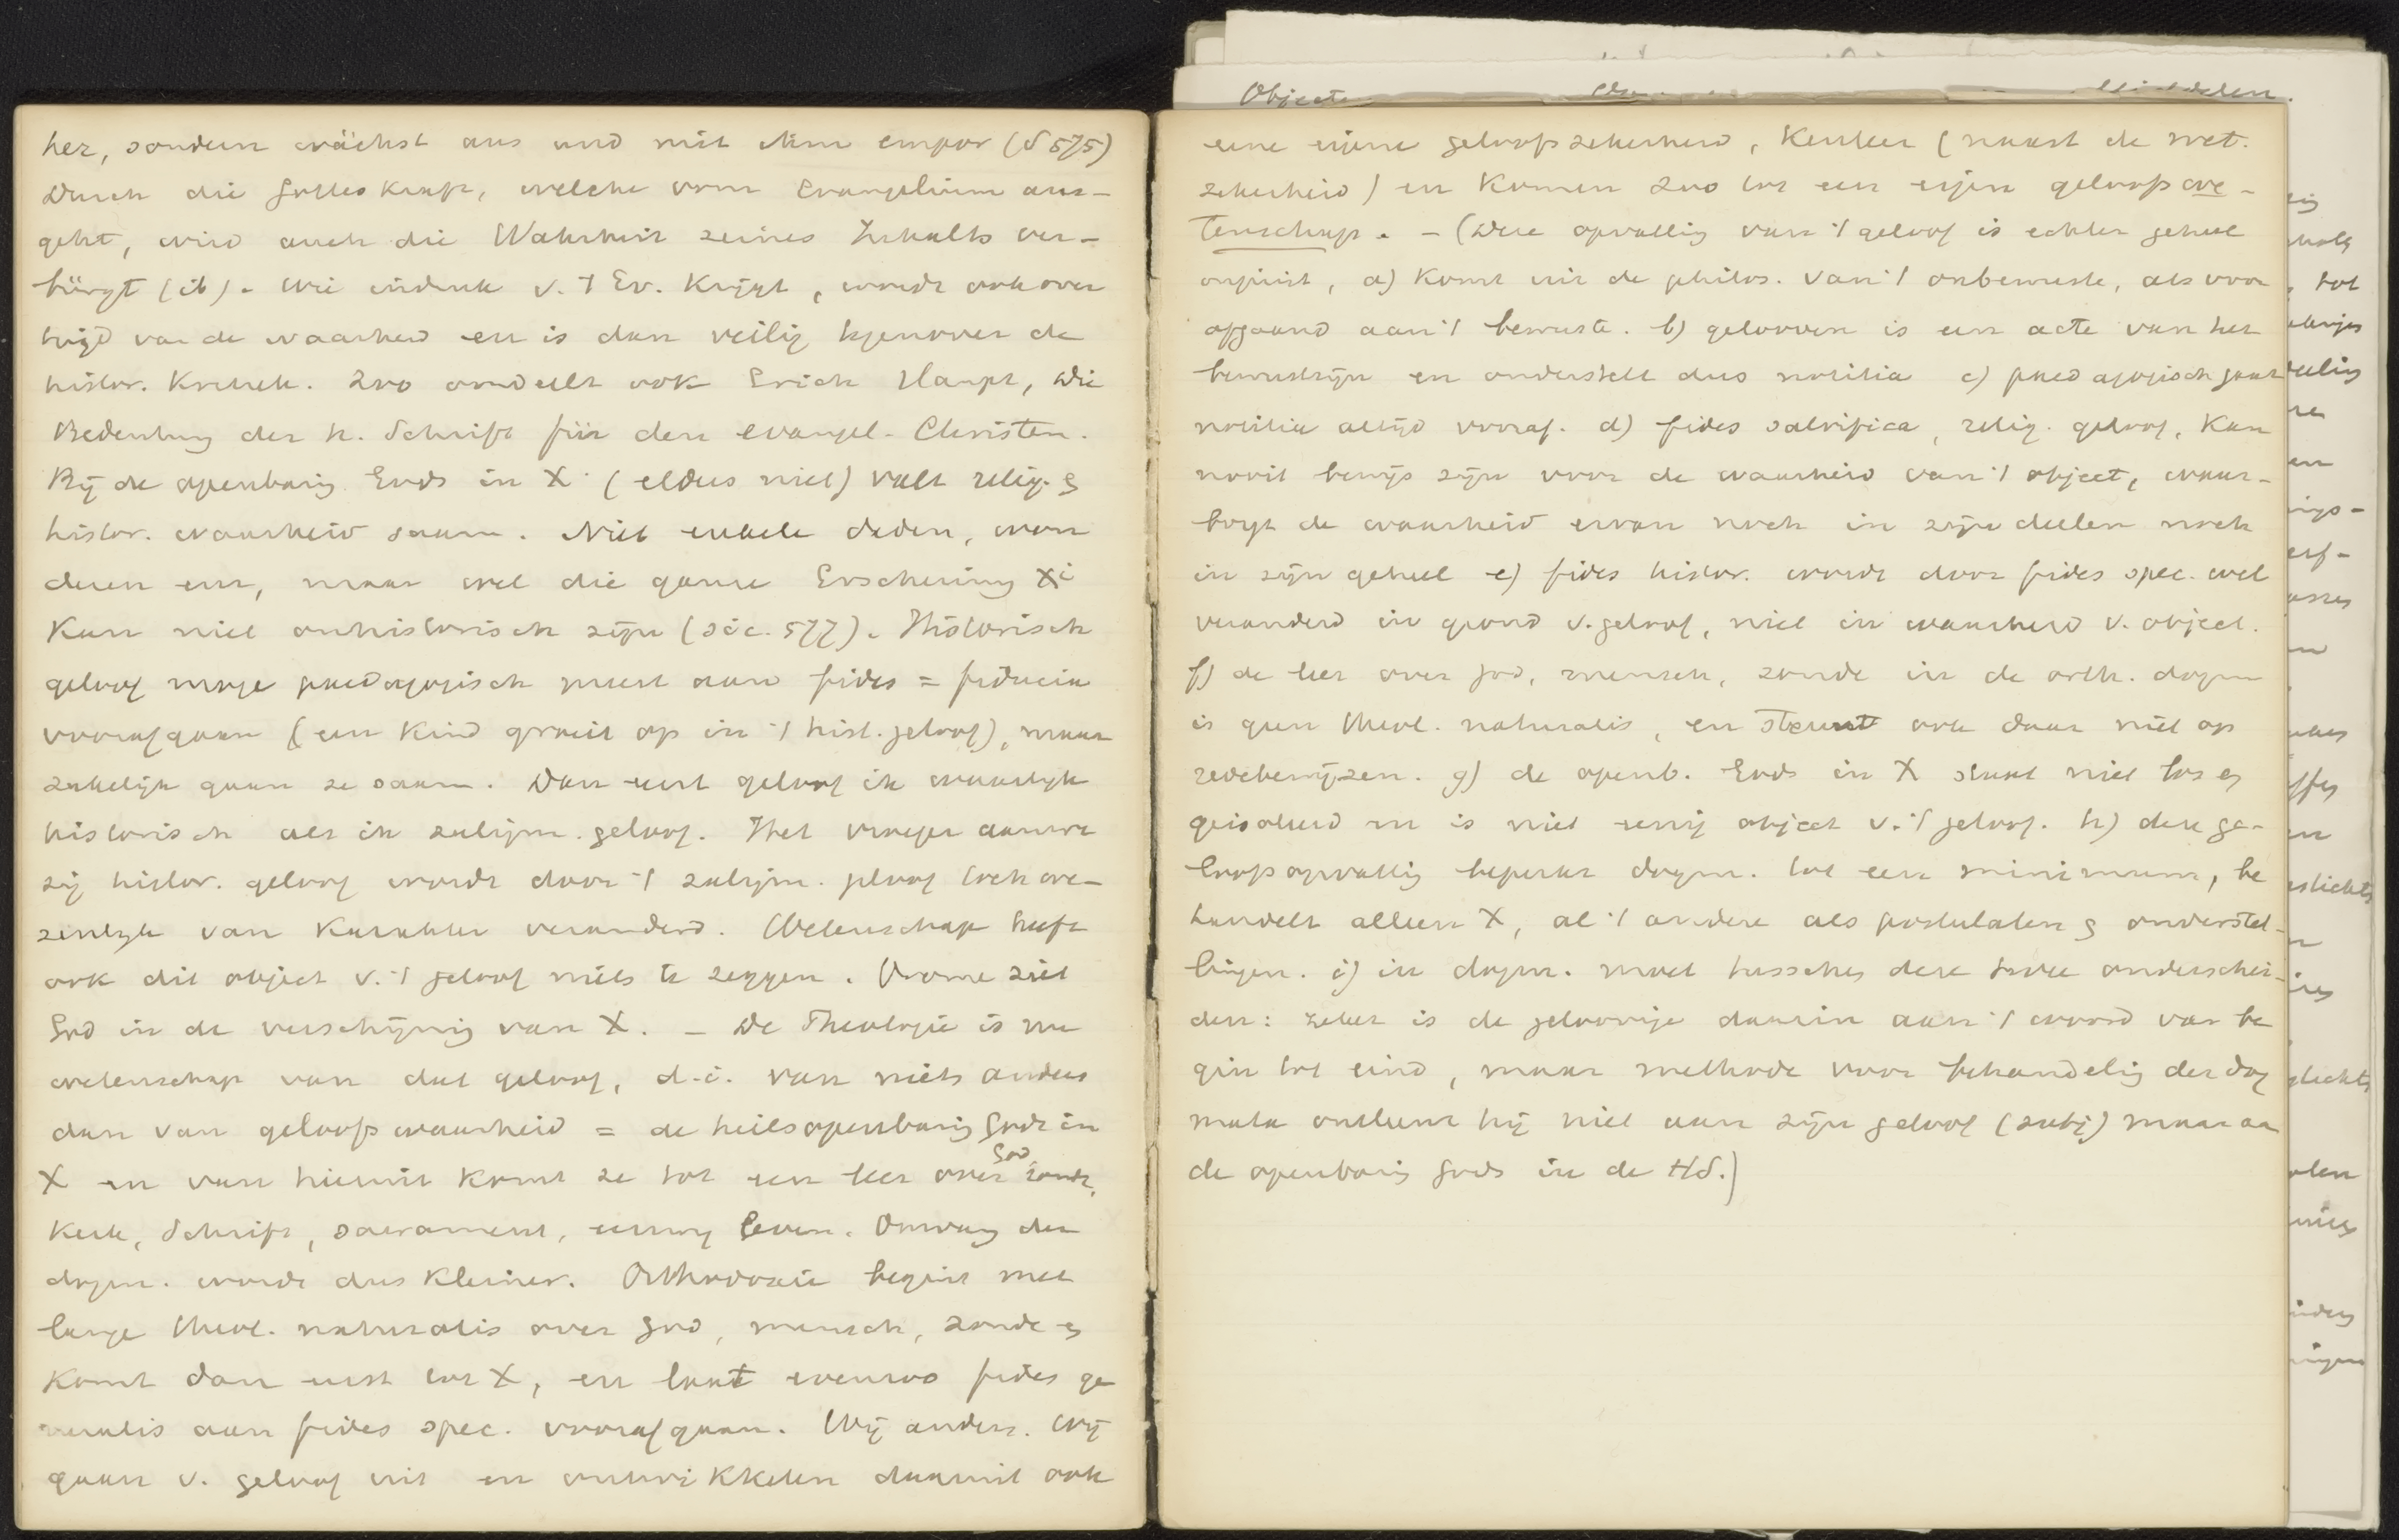 her, sondern wächst aus und mit ihm empor (S 575)
Durch die Gotteskraft, welche vom Evangelium aus-
geht, wird auch die Wahrheit seines Inhalts ver-
bürgt (ib). Wie indruk v. 't Ev. krijgt, wordt ook over
tuigd van de waarheid en is dan veilig tegenover de
histor. Kritiek. Zoo oordeelt ook Erich Haupt, Die
Bedeutung der h. Schrift für den evangel. Christen.
Bij de openbaring Gods in X (elders niet) valt relig. &
histor. waarheid saam. Niet enkele daden, won
deren enz, maar wel die ganze Erscheinung Xi
kan niet onhistorisch zijn (sic. 577). Historisch
geloof moge paedagogisch meest aan fides = fiducia
voorafgaan (een kind groeit op in 't hist. geloof), maar
zakelijk gaan ze saam. Dan eerst geloof ik waarlijk
historisch als ik zaligm. geloof. Het vroeger aanwe
zig histor. geloof wordt door 't zaligm. geloof toch we-
zenlijk van karakter veranderd. Wetenschap heeft
ook dit object v. 't geloof niets te zeggen. Vrome ziet
God in de verschijning van X. – De Theologie is nu
wetenschap van dat geloof, d.i. van niets anders
dan van geloofswaarheid = de heilsopenbaring Gods in
X en van hieruit komt ze tot een leer over God, zonde,
Kerk, Schrift, sacrament, eeuwig leven. Omvang der
dogm. wordt dus kleiner. Orthodoxie begint met
lange theol. naturalis over God, mensch, zonde &
komt dan eerst tot X, en laat evenzoo fides ge
neralis aan fides spec. voorafgaan. Wij anders. Wij
gaan v. geloof uit en ontwikkelen daaruit ook
Objecten
eene eigene geloofszekerheid, kenleer (naast de wet.
zekerheid) en komen zoo tot een eigen geloofswe-
tenschap. – (Deze opvatting van 't geloof is echter geheel
onjuist, a) komt uit de philos. van 't onbewuste, als voor
afgaand aan 't bewuste. b) gelooven is een acte van het
bewustzijn en onderstelt dus notitia c) paedagogisch gaat
notitia altijd vooraf. d) fides salvifica, relig. geloof, kan
nooit bewijs zijn voor de waarheid van 't object, waar-
borgt de waarheid ervan noch in zijne deelen noch
in zijn geheel e) fides histor. wordt door fides spec. wel
veranderd in grond v. geloof, niet in waarheid v. object.
f) de leer over God, mensch, zonde in de orth. dogm
is geen theol. naturalis, en steunt ook daar niet op
redebewijzen. g) de openb. Gods in X staat niet los &
geisoleerd en is niet eenig object v. 't geloof. h) deze ge-
loofsopvatting beperkt dogm. tot een minimum, be
handelt alleen X, al 't andere als postulaten & onderstel-
lingen. i) in dogm. moet tusschen deze twee onderschei-
den: zeker is de geloovige daarin aan 't woord van be
gin tot eind, maar methode voor behandeling der dog
mata ontleent hij niet aan zijn geloof (subj) maar aan
de openbaring Gods in de HS.)